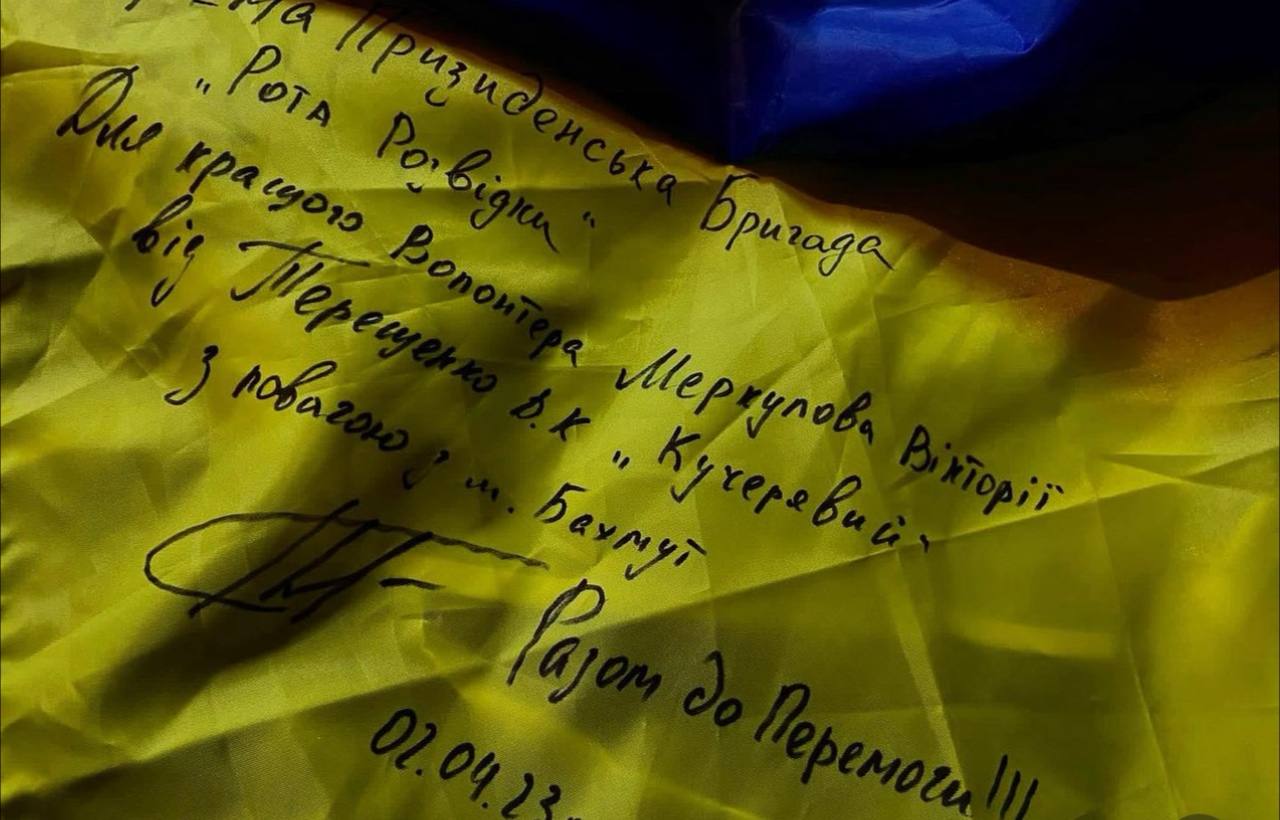 Призиденська Бригада
„Рота Розвідки"
Для кращого Волонтера Меркулова Вікторії
від Терещенко В.К „Кучерявий"
з повагою з м. Бахмут
Разом до Перемоги!!!
02.04.23.